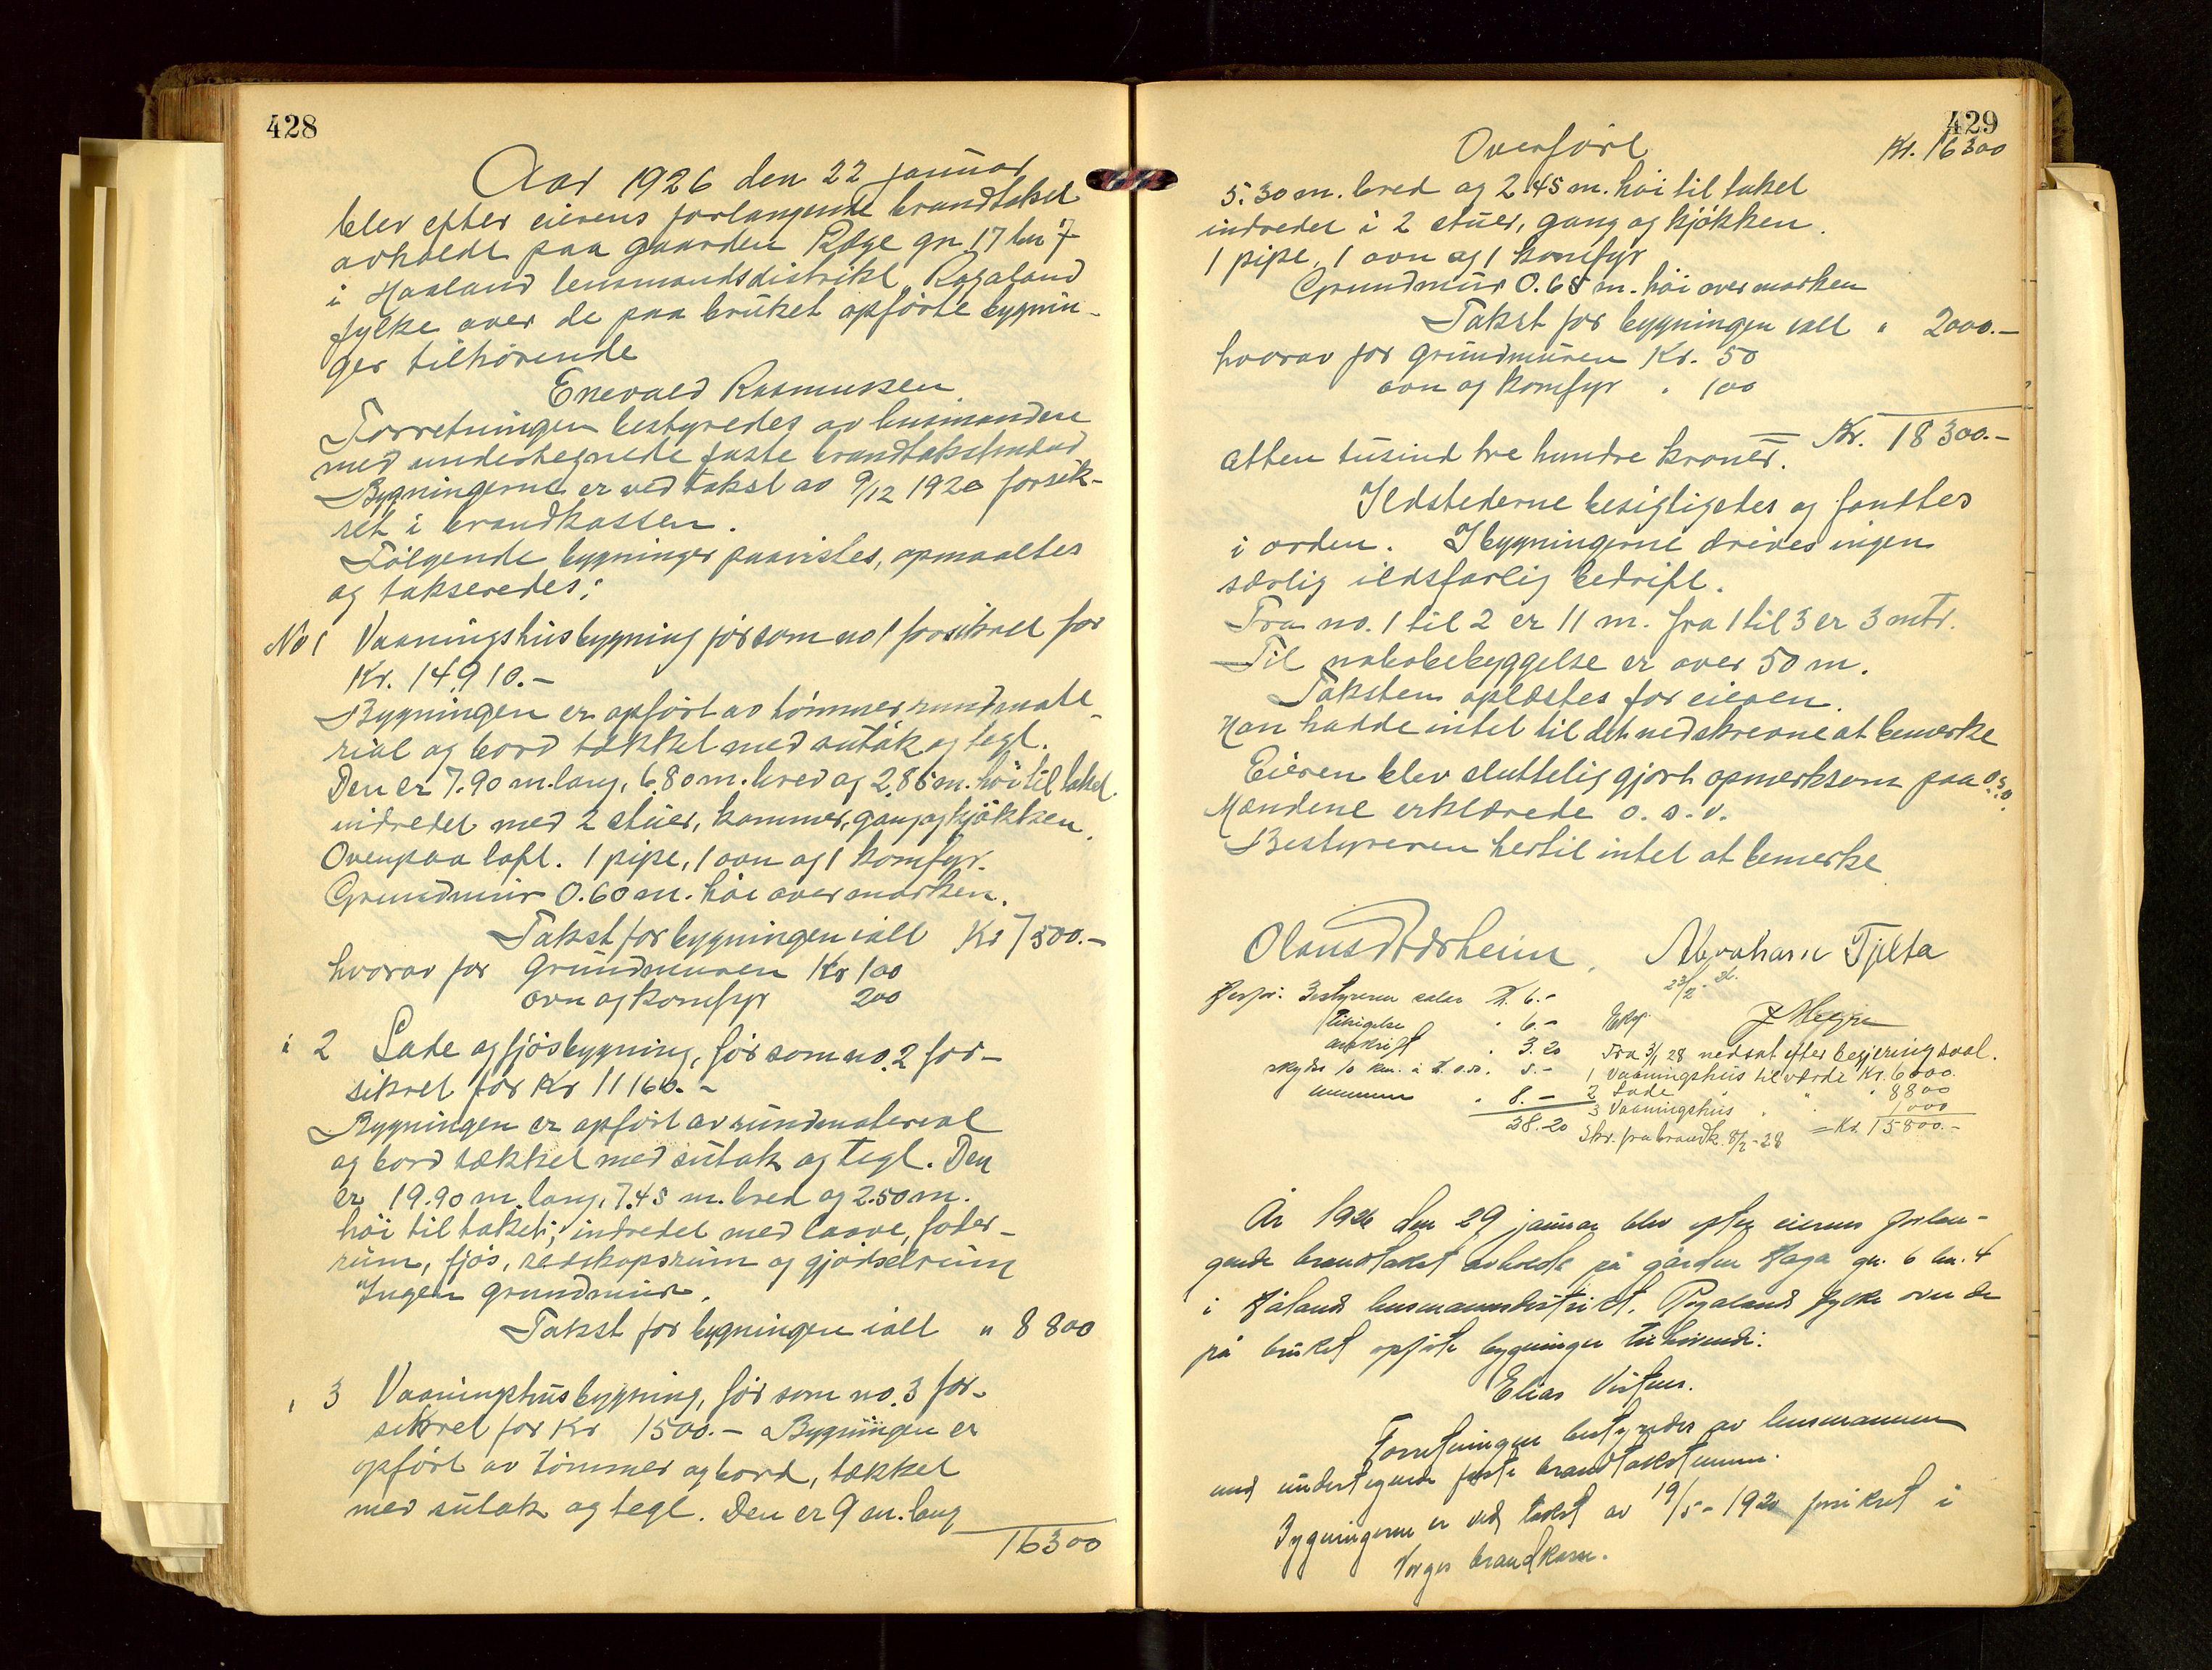 428
Aar 1926 den 22 januar
blev efter eierens forlangende brandtakst
avholdt paa gaarden Ræge gn. 17 bn 7
i Haaland lensmandsdistrikt Rogaland
fylke over de paa bruket opførte bygnin-
ger tilhørende
Enevald Rasmussen
Forretningen bestyredes av lensmanden
med undertegnede faste brandtakstmænd
Bygningerne er ved takst av 9/12 1920 forsik-
ret i brandkassen.
Følgende bygninger paavistes, opmaaltes
og takseredes:
No 1 Vaaningshusbygning før som no 1 forsikret for
Kr. 14910.-
Bygningen er opført av tømmer rundmate-
rial og bord tækket med sutak og tegl.
Den er 7.90 m. lang, 6.80 m. bred og 2.85 m. høi til taket.
indredet med 2 stuer, kammer, gang og kjøkken.
Ovenpaa loft. 1 pipe, 1 ovn og 1 komfyr.
Grundmur 0.60 m. høi over marken.
Takst for bygningen ialt Kr 7500.-
hvorav for Grundmuren Kr 100
ovn og komfyr 200
" 2 Lade og fjøsbygning, før som no. 2 for-
sikret for Kr 11160.-
Bygningen er opført av rundmaterial
og bord tækket med sutak og tegl. Den
er 19.90 m. lang, 7.45 m. bred og 2.50 m.
høi til taket; indredet med laave, foder-
rum, fjøs, redskapsrum og gjødselrum
Ingen grundmur.
Takst for bygningen ialt " 8800
" 3 Vaaningshusbygning, før som no. 3 for-
sikret for Kr 1500.- Bygningen er
opført av tømmer og bord, tækket
med sutak og tegl. Den er 9 m. lang
16300
429
Overført Kr. 16300
5.30 m. bred og 2.45 m. høi til taket
indredet i 2 stuer, gang og kjøkken.
1 pipe, 1 ovn og 1 komfyr
Grundmur 0.65 m. høi over marken
Takst for bygningen ialt " 2000.-
hvorav for grundmuren Kr. 50
ovn og komfyr " 100
Kr. 18300.-
atten tusind tre hundre kroner.
Ildstederne besigtigedes og fandtes
i orden. I bygningerne drives ingen
særlig ildsfarlig bedrift.
Fra no. 1 til 2 er 11 m. fra 1 til 3 er 3 mtr.
Til nabobebyggelse er over 50 m.
Taksten oplæstes for eieren.
Han hadde intet til det nedskrevne at bemerke
Eieren blev sluttelig gjort opmerksom paa o.s.v.
Mændene erklærede o. s. v.
Bestyreren hertil intet at bemerke
Abraham Tjelta
Bestyreren Kr. 6.-
" 6.-
avskrift " 3.20
5.-
" 8.-
28.20
Eksp.
Fra 3/1 28 nedsat efter begjering saal.
1 Vaaningshus til værdi Kr. 6000.
2 Lade " " 8800
3 Vaaningshus " 1000
= Kr. 15800.-
Skr. fra brandk. 8/2-28
År 1926 den 29 januar blev efter eierens forlan-
gende brandtakst avholdt på gården Haga gn. 6 bn. 4
i Håland lensmannsdistrikt, Rogaland fylke over de
på bruket opførte bygninger tilhørende:
Elias Vistnes.
Forretningen bestyredes av lensmannen
med undertegnede faste brandtakstmenn.
Bygningerne er ved takst av 19/5-1920 forsikret i
Norges brandkasse.